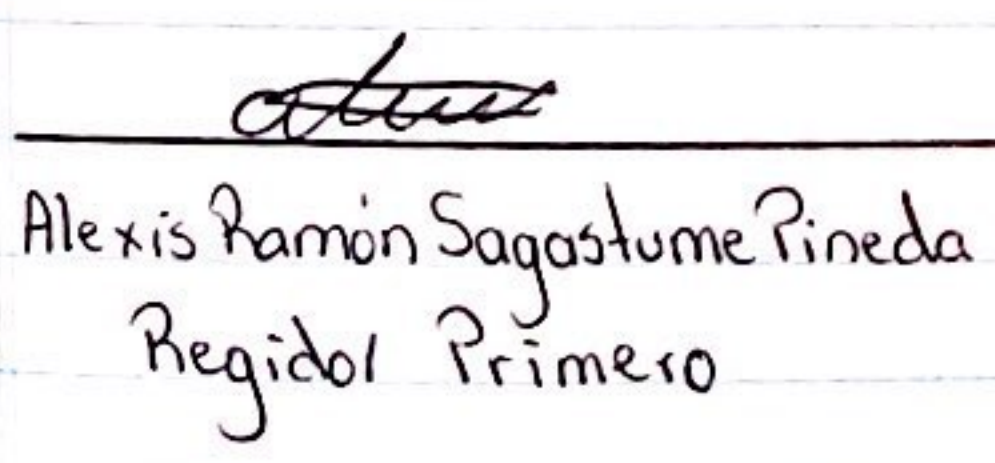 Alexis Ramón Sagastume Pineda
Regidor Primero